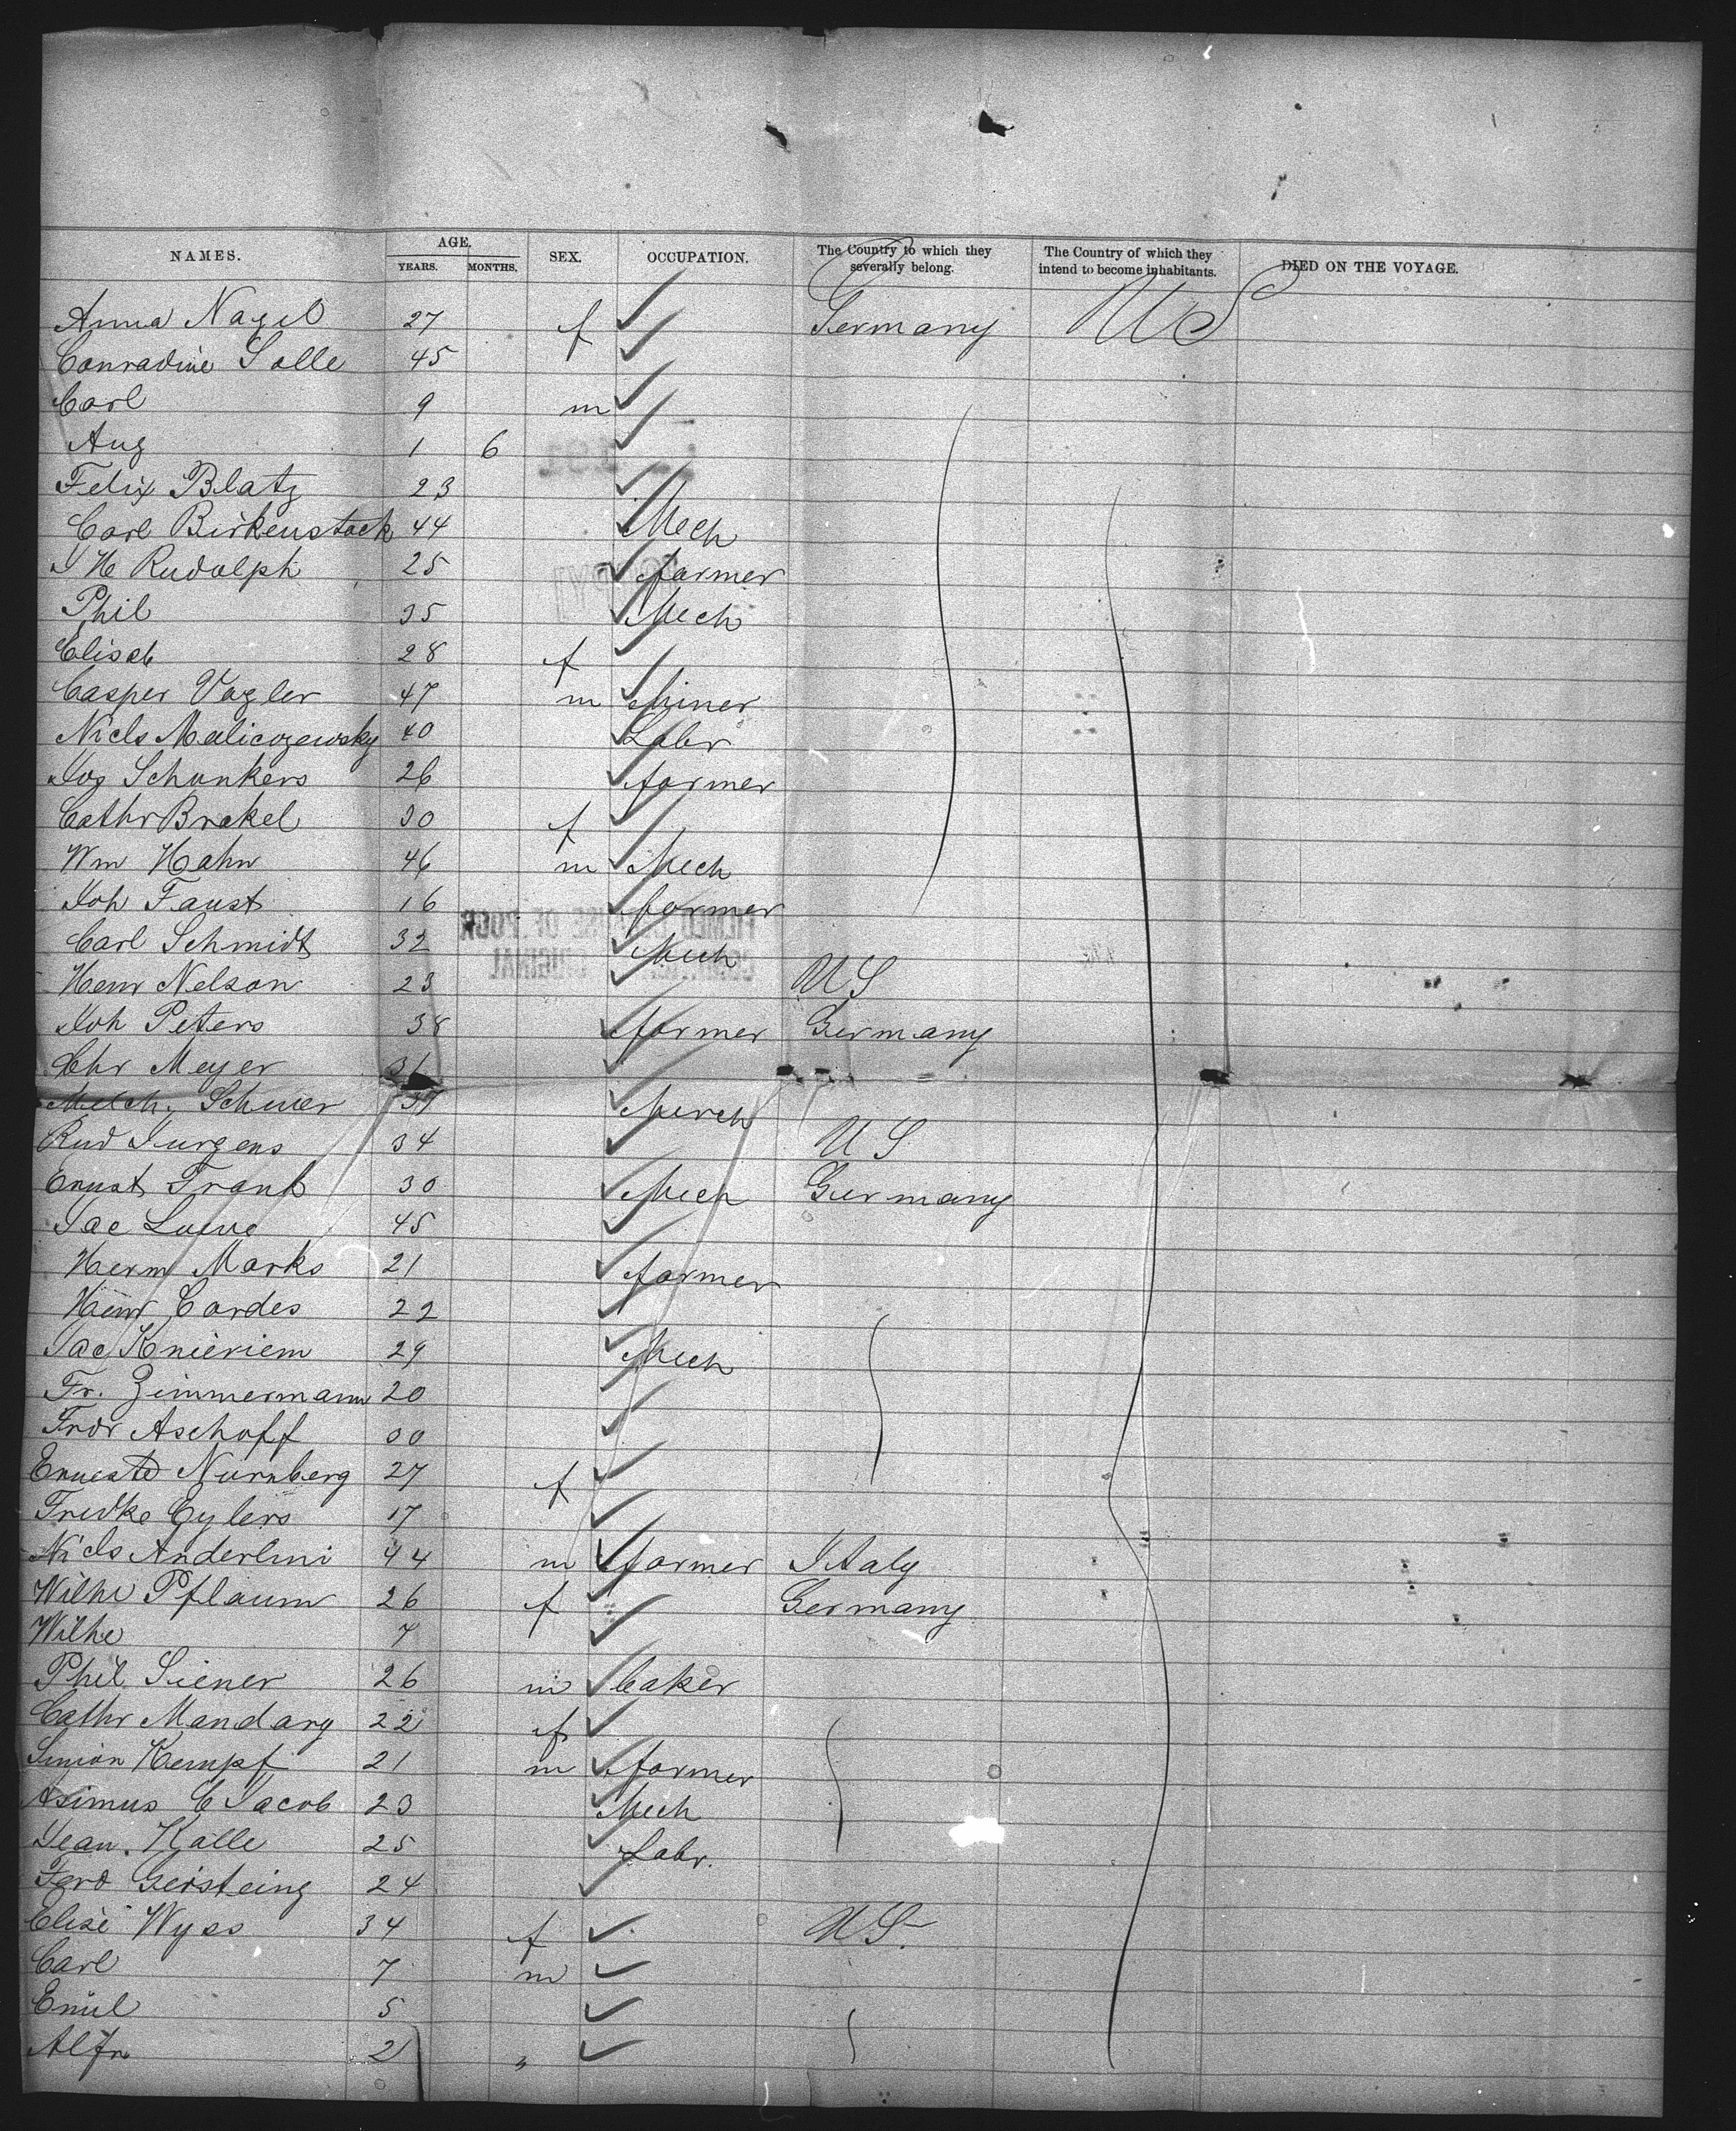 NAMES. AGE. SEX. OCCUPATION. The Country to which they severally belong. The Country of which they intend to become inhabitants. DIED ON THE VOYAGE.
YEARS. MONTHS.
Anna Nagel 27 f Germany US
Conradine Solle 45
Carl 9 m
Aug 1 6
Felix Blatz 23
Carl Birkenstock 44 Mech
H Rudolph 25 farmer
Phil 35 Mech
Elisab 28 f
Casper Vogler 47 m Miner
Nicls Malicozewsky 40 Labr
Jos Schonkers 26 farmer
Cathr Brakel 30 f
Wm Hahn 46 m Mech
Joh Faust 16 farmer
Carl Schmidt 32 Mech
Henr Nelson 23 US
Joh Peters 38 farmer Germany
Chr Meyer 31
Melch. 37 Merch
Rud Jurgens 34 US
Ernst Frank 30 Mech Germany
Jac Loewe 45
Herm Marks 21 farmer
Henr Cordes 22
Jac Knieriem 29 Mech
Fr. Zimmermann 20
Frdr Aschoff 30
Erneste Nurnberg 27 f
Fredke Eylers 17
Nicls Anderlini 44 m farmer Italy
Wilhe Pflaum 26 f Germany
Wilhe 7
Phil Siener 26 m baker
Cathr Mandary 22 f
Simon Kempf 21 m farmer
Asimus C Jacob 23 Mech
Jean Kalle 25 Labr.
Ferd Geisteing 24
Elise Wyss 34 f US.
Carl 7 m
Emil 5
Alfr 2 "